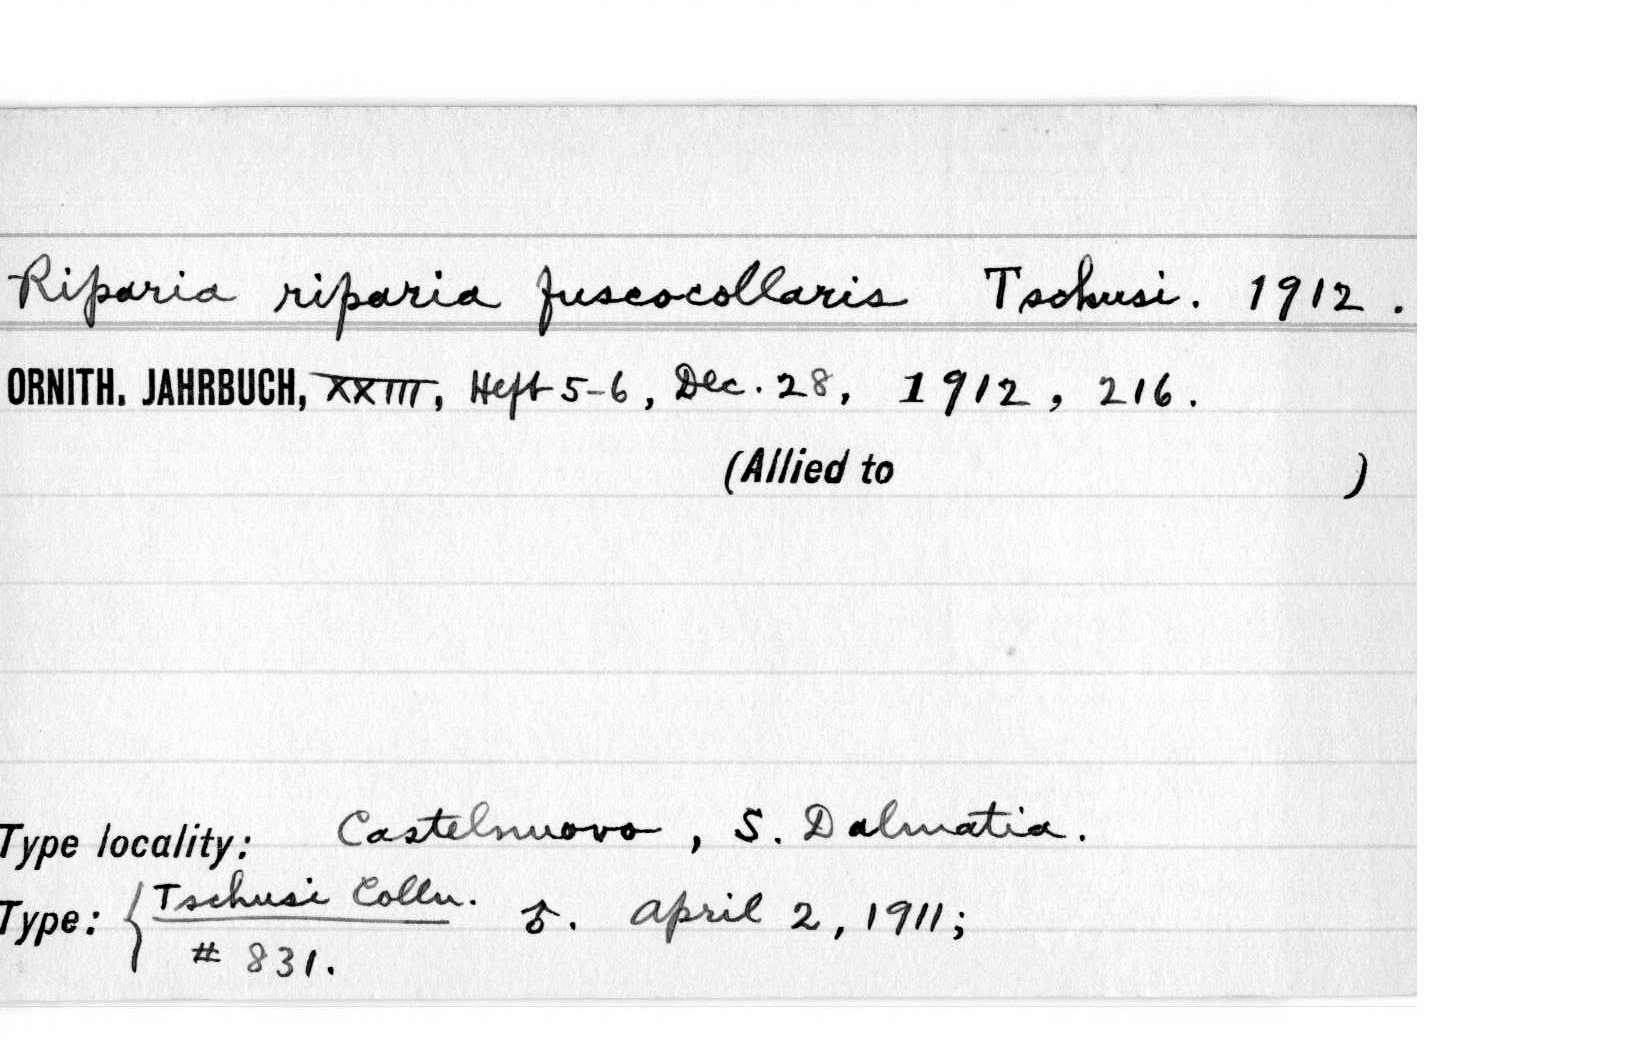 Riparia riparia fuscocollaris Tschusi. 1912.
ORNITH. JAHRBUCH, XXIII, Heft 5-6, Dec. 28, 1912, 216.
(Allied to )
Type locality: Castelnuovo, S. Dalmatia.
Type: { Tschusi Colln. ♂. April 2, 1911;
# 831.